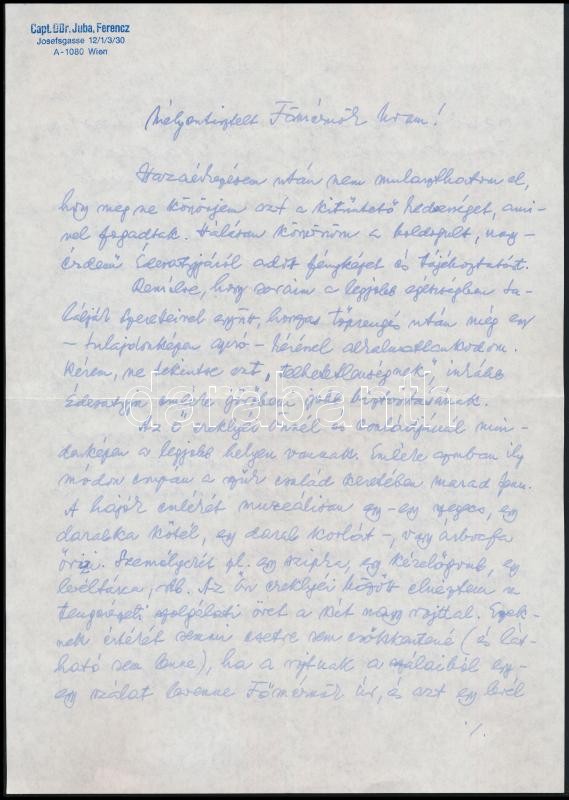 Capt. DDr. Juba, Ferencz
Josefsgasse 12/1/3/30
A-1080 Wien
Mélyentisztelt Főmérnök Uram!
Hazaérkezésem után nem mulaszthatom el,
hogy meg ne köszönjem azt a kitüntető kedvességet, ami-
vel fogadtak. Hálásan köszönöm a boldogult, nagy-
érdemű Édesatyjáról adott fényképet és tájékoztatást.
Remélve, hogy soraim a legjobb egészségben ta-
lálják szeretteivel együtt, hosszas töprengés után még egy
– tulajdonképen apró – kéréssel alkalmatlankodom.
Kérem, ne tekintse ezt "telhetetlenségnek", inkább
Édesatyja emléke jövőben jobb biztosításának.
Az ő ereklyéi Önnél és családjánál min-
denképen a legjobb helyen vannak. Emléke azonban ily
módon csupán a szűk család keretében marad fenn.
A hajók emlékét muzeálisan egy-egy szegecs, egy
darabka kötél, egy darab korlát –, vagy árbocfa
őrzi. Személyekét pl. egy szipka, egy kézelőgomb, egy
levéltárca, stb. Az Ön ereklyéi között elnéztem a
tengerészeti szolgálati övet a két nagy rojttal. Ezek-
nek értékét semmi esetre sem csökkentené (és lát-
ható sem lenne), ha a rojtnak a szálaiból egy-
egy szálat levenne Főmérnök Úr, és azt egy levél
./.
darabanth